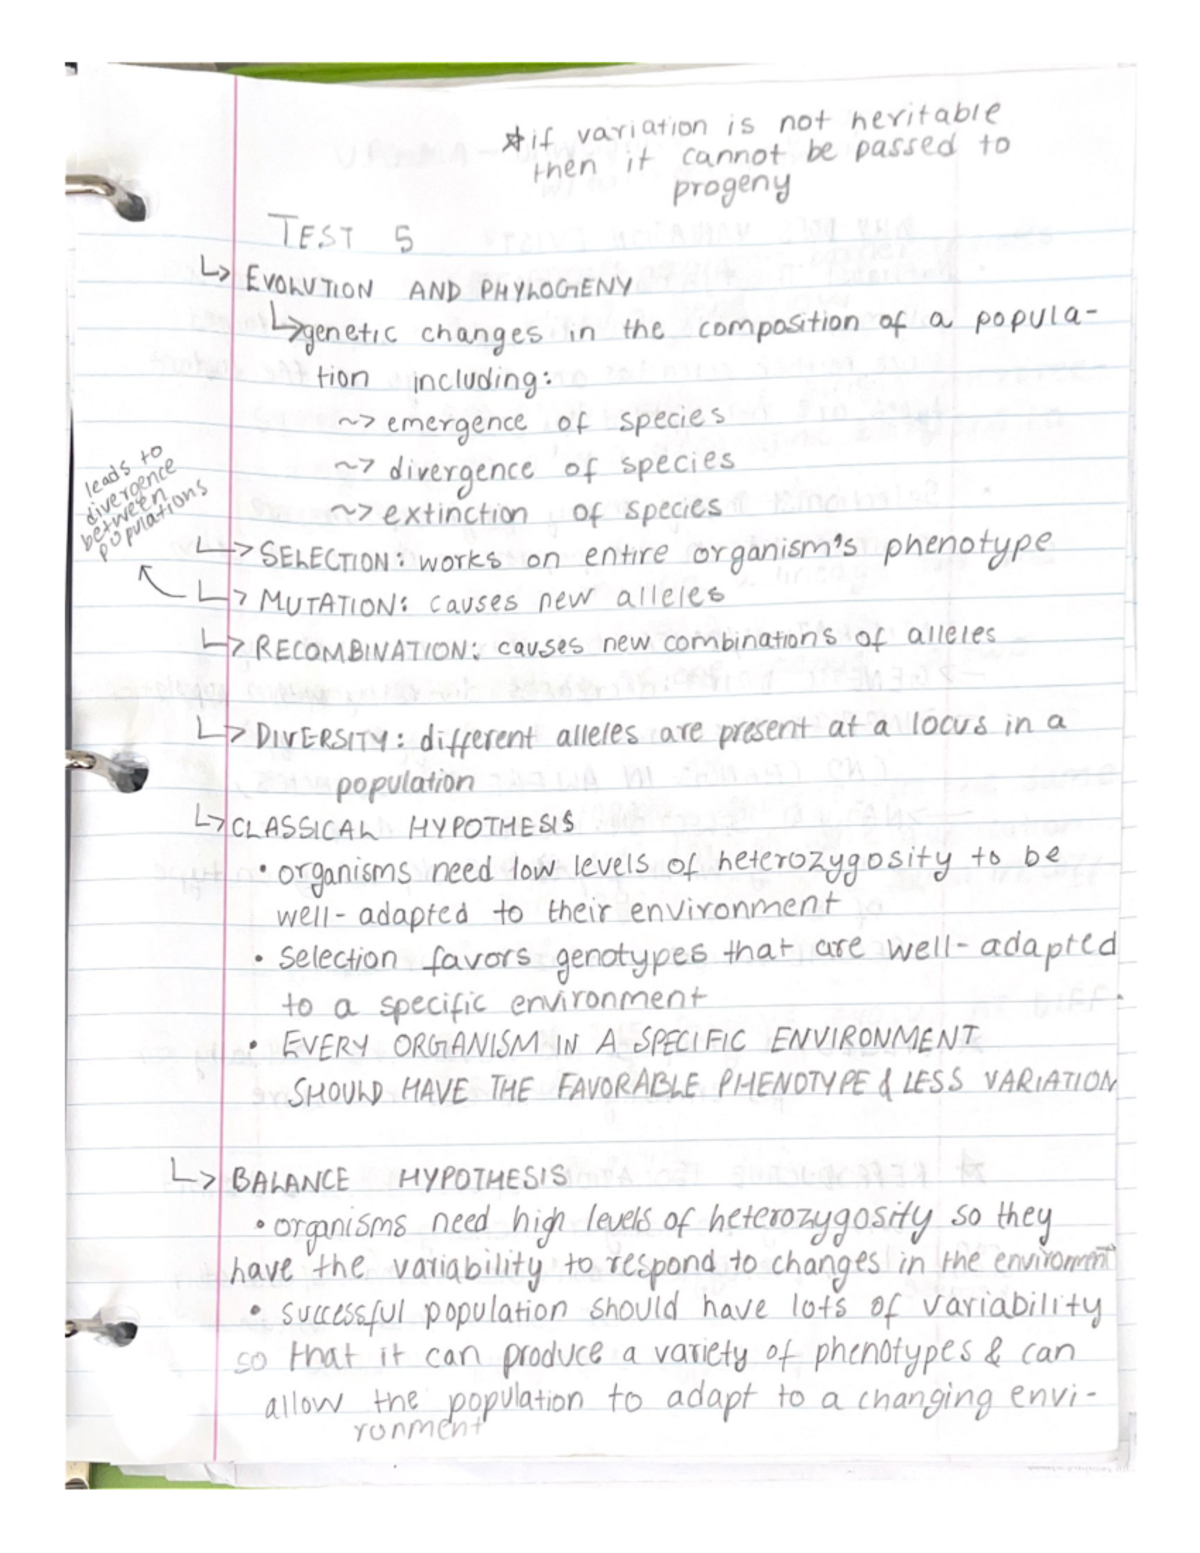 ☆if variation is not heritable
then it cannot be passed to
progeny
TEST 5
↳ EVOLUTION AND PHYLOGENY
↳genetic changes in the composition of a popula-
tion including:
~> emergence of species
~> divergence of species
~> extinction of species
leads to
divergence
between
populations
↳ SELECTION: works on entire organism's phenotype
↳ MUTATION: causes new alleles
↳ RECOMBINATION: causes new combinations of alleles
↳ DIVERSITY: different alleles are present at a locus in a
population
↳ CLASSICAL HYPOTHESIS
• organisms need low levels of heterozygosity to be
well-adapted to their environment
• selection favors genotypes that are well-adapted
to a specific environment
• EVERY ORGANISM IN A SPECIFIC ENVIRONMENT
SHOULD HAVE THE FAVORABLE PHENOTYPE & LESS VARIATION
↳ BALANCE HYPOTHESIS
• organisms need high levels of heterozygosity so they
have the variability to respond to changes in the environment
• successful population should have lots of variability
so that it can produce a variety of phenotypes & can
allow the population to adapt to a changing envi-
ronment